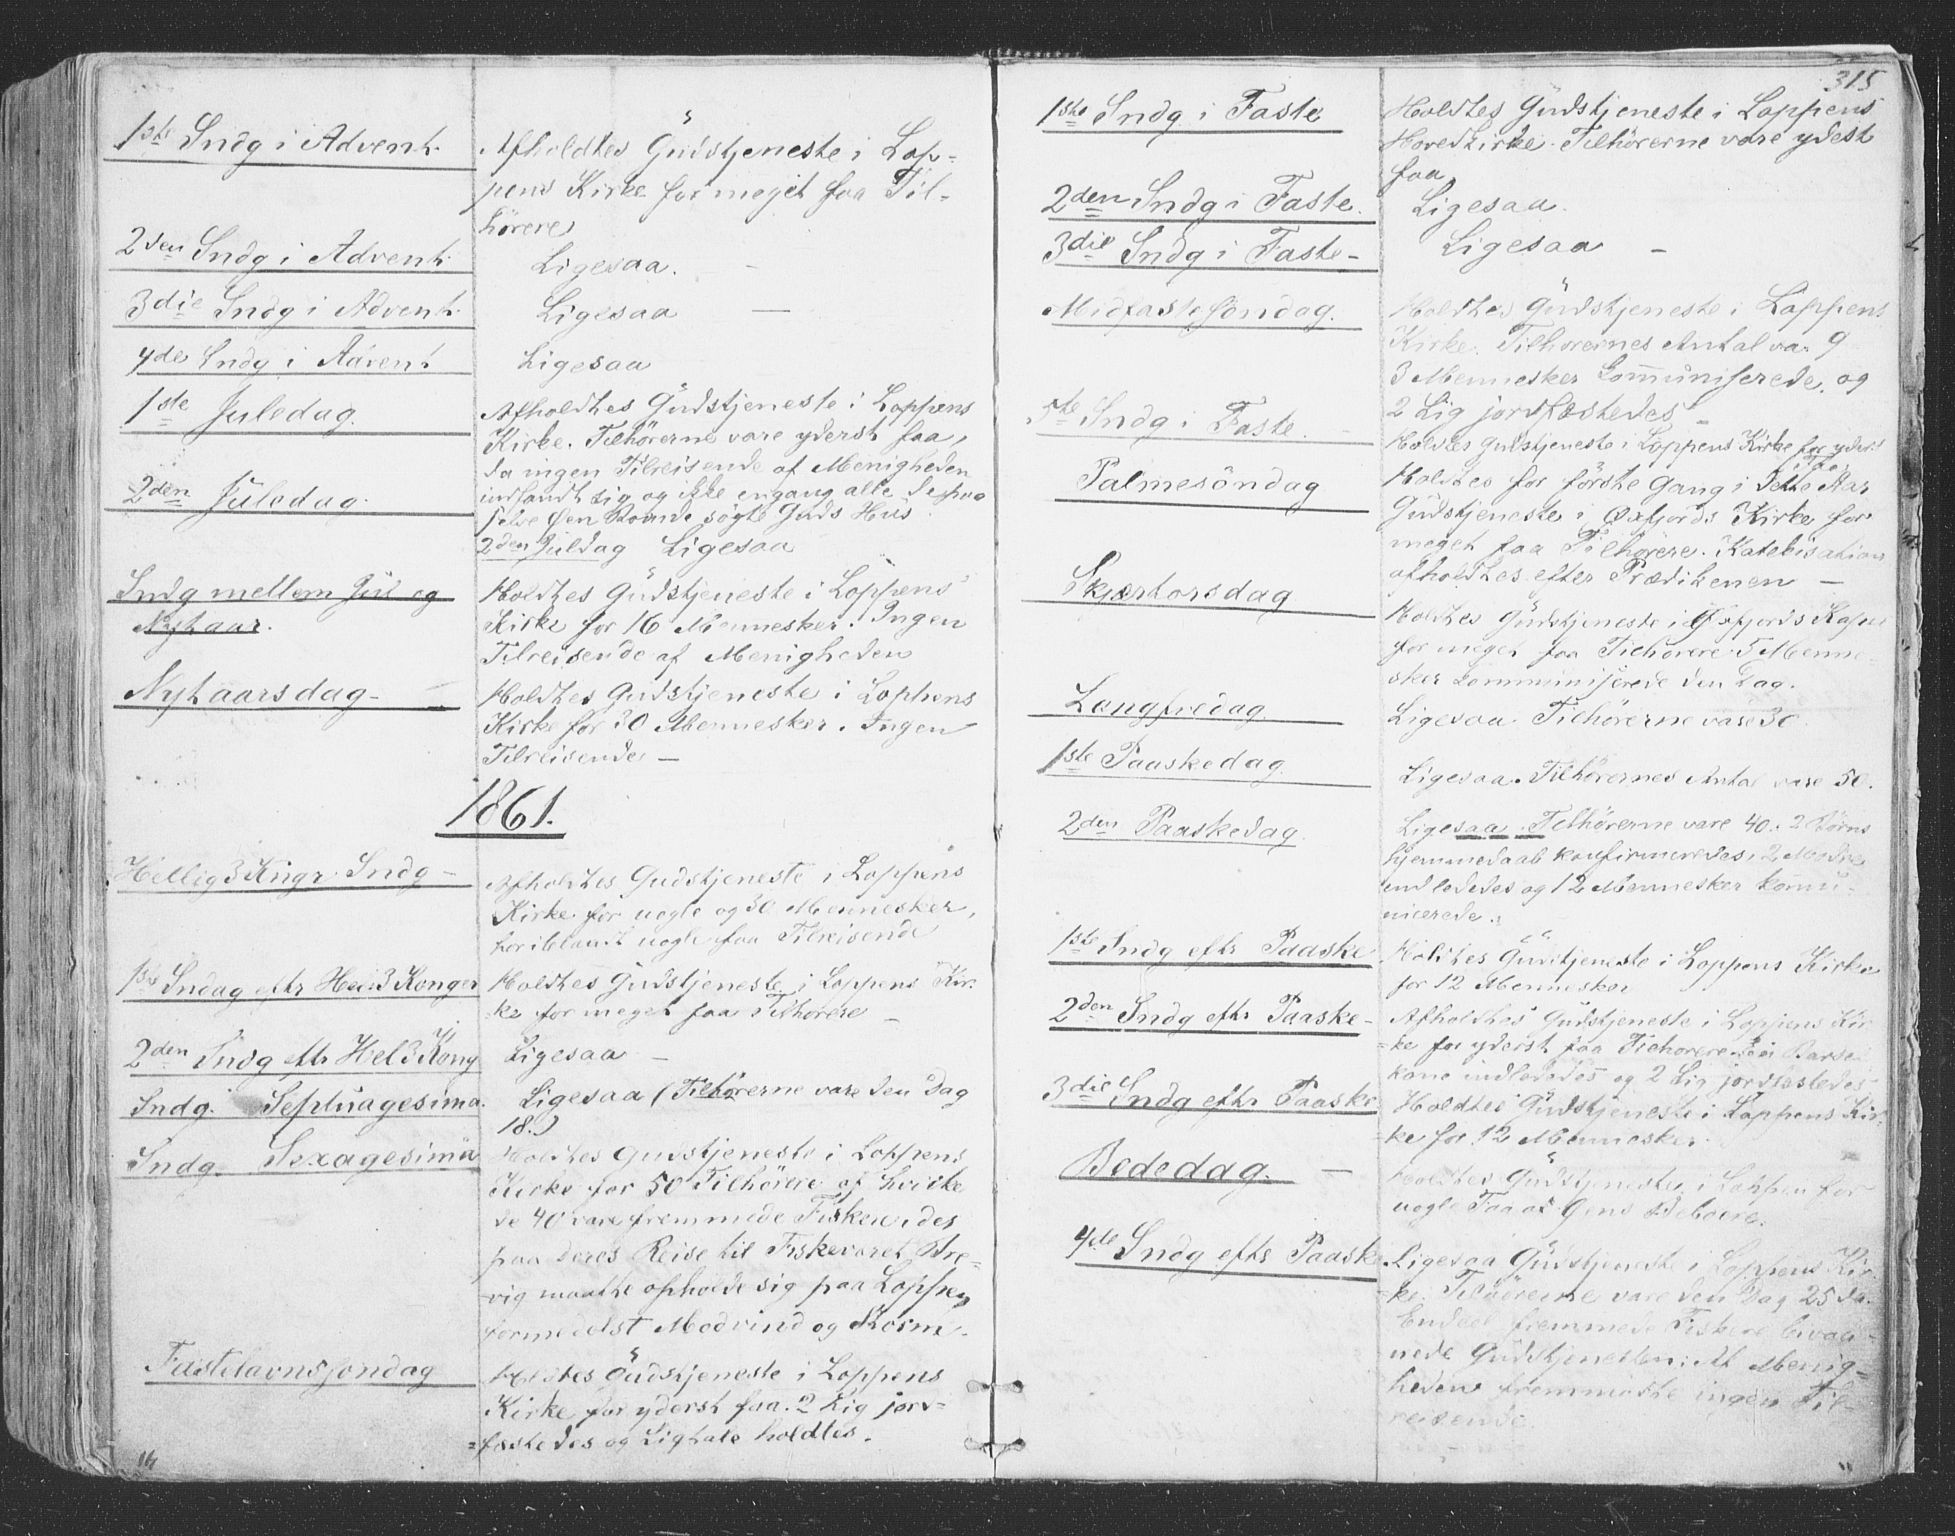 1ste Sndg i Advent.
Afholdtes Gudstjeneste i Lop-
pens Kirke for meget faa Til-
hörere
2den Sndg i Advent.
Ligesaa. —
3die Sndg i Advent.
Ligesaa —
4de Sndg i Advent
Ligesaa
1ste Juledag.
Afholdtes Gudstjeneste i Loppens
Kirke. Tilhörerne vare yderst faa,
da ingen Tilreisende af Menigheden
indfandt sig og ikke engang alle de paa
selve Øen Boende sögte Guds Hus.
2den Juledag.
2den Juldag Ligesaa
Sndg mellem Jul og
Nytaar.
Holdtes Gudstjeneste i Loppens
Kirke for 16 Mennesker. Ingen
Tilreisende af Menigheden
Nytaarsdag —
Holdtes Gudstjeneste i Loppens
Kirke for 30 Mennesker. Ingen
Tilreisende —
1861.
Hellig 3 Kngr Sndg —
Afholdtes Gudstjeneste i Loppens
Kirke for nogle og 30 Mennesker,
heriblandt nogle faa Tilreisende
1ste Sndag eftr Hel 3 Konger
Holdtes Gudstjeneste i Loppens Kir-
ke for meget faa Tilhörere —
2den Sndg eftr Hel 3 Kong
Ligesaa —
Sndg. Septuagesima.
Ligesaa (Tilhörerne vare den Dag
18.)
Sndg. Sexagesima
Holdtes Gudstjeneste i Loppens
Kirke for 50 Tilhörere af hvilke
de 40 vare fremmede Fiskere, der
paa deres Reise til Fiskeværet Bre-
vig maatte opholde sig paa Loppen
formedelst Modvind og Storm.
Fastelavnssöndag
Holdtes Gudstjeneste i Loppens
Kirke for yderst faa. 2 Lig jord-
fæstedes og Ligtale holdtes.
315
1ste Sndg i Faste
Holdtes Gudstjeneste i Loppens
Hovedkirke. Tilhörerne vare ydest
faa
2den Sndg i Faste.
Ligesaa.
3die Sndg i Faste —
Ligesaa —
Midfastesöndag.
Holdtes Gudstjeneste i Loppens
Kirke. Tilhörernes Antal var 9
3 Mennesker Communiserede. og
2 Lig jordfæstedes
5te Sndg i Faste.
Holdtes Gudstjeneste i Loppens Kirke for yderst
Palmesöndag
Holdtes for förste Gang i dette Aar
Gudstjeneste i Øxfjords Kirke for
meget faa Tilhörere. Katekisation
afholdtes efter Prædikenen —
Skjærtorsdag
Holdtes Gudstjeneste i Øxfjords Kapel
for meget faa Tilhörere 5 Menne-
sker Communiserede den Dag.
Langfredag
Ligesaa Tilhörerne vare 30
1ste Paaskedag
Ligesaa. Tilhörernes Antal vare 50.
2den Paaskedag.
Ligesaa Tilhörerne vare 40. 2 Börns
hjemmedaab konfirmeredes, 2 Mödre
indlededes og 12 Mennesker kommu-
nicerede.
1ste Sndg eftr Paaske
Holdtes Gudstjeneste i Loppens Kirke
for 12 Mennesker
2den Sndg eftr Paaske —
Afholdtes Gudstjeneste i Loppens Kir-
ke for yderst faa Tilhörere. En Barsel
kone indlededes og 2 Lig jordfæstedes
3die Sndg eftr Paaske
Holdtes Gudstjeneste i Loppens Kir-
ke for 12 Mennesker.
Bededag. —
Holdtes Gudstjeneste i Loppen for
nogle Faa af Öens Beboere.
4de Sndg eftr Paaske
Ligesaa Gudstjeneste i Loppens Kir-
ke. Tilhörerne vare den Dag 25 da
Endeel fremmede Fiskere bivaa-
nede Gudstjenesten. Af Menig-
heden fremmödte ingen Til-
reisende.